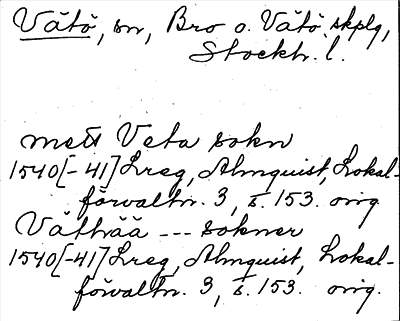 Vätö, sn, Bro o. Vätö skplg,
Stockh. l.
mett Veta sokn
1540[-41] Lreg, Almquist, Lokal-
förvaltn. 3, s. 153. orig
Väthåå --- sokner
1540[-41] Lreg, Almquist, Lokal-
förvaltn. 3, s. 153. orig.